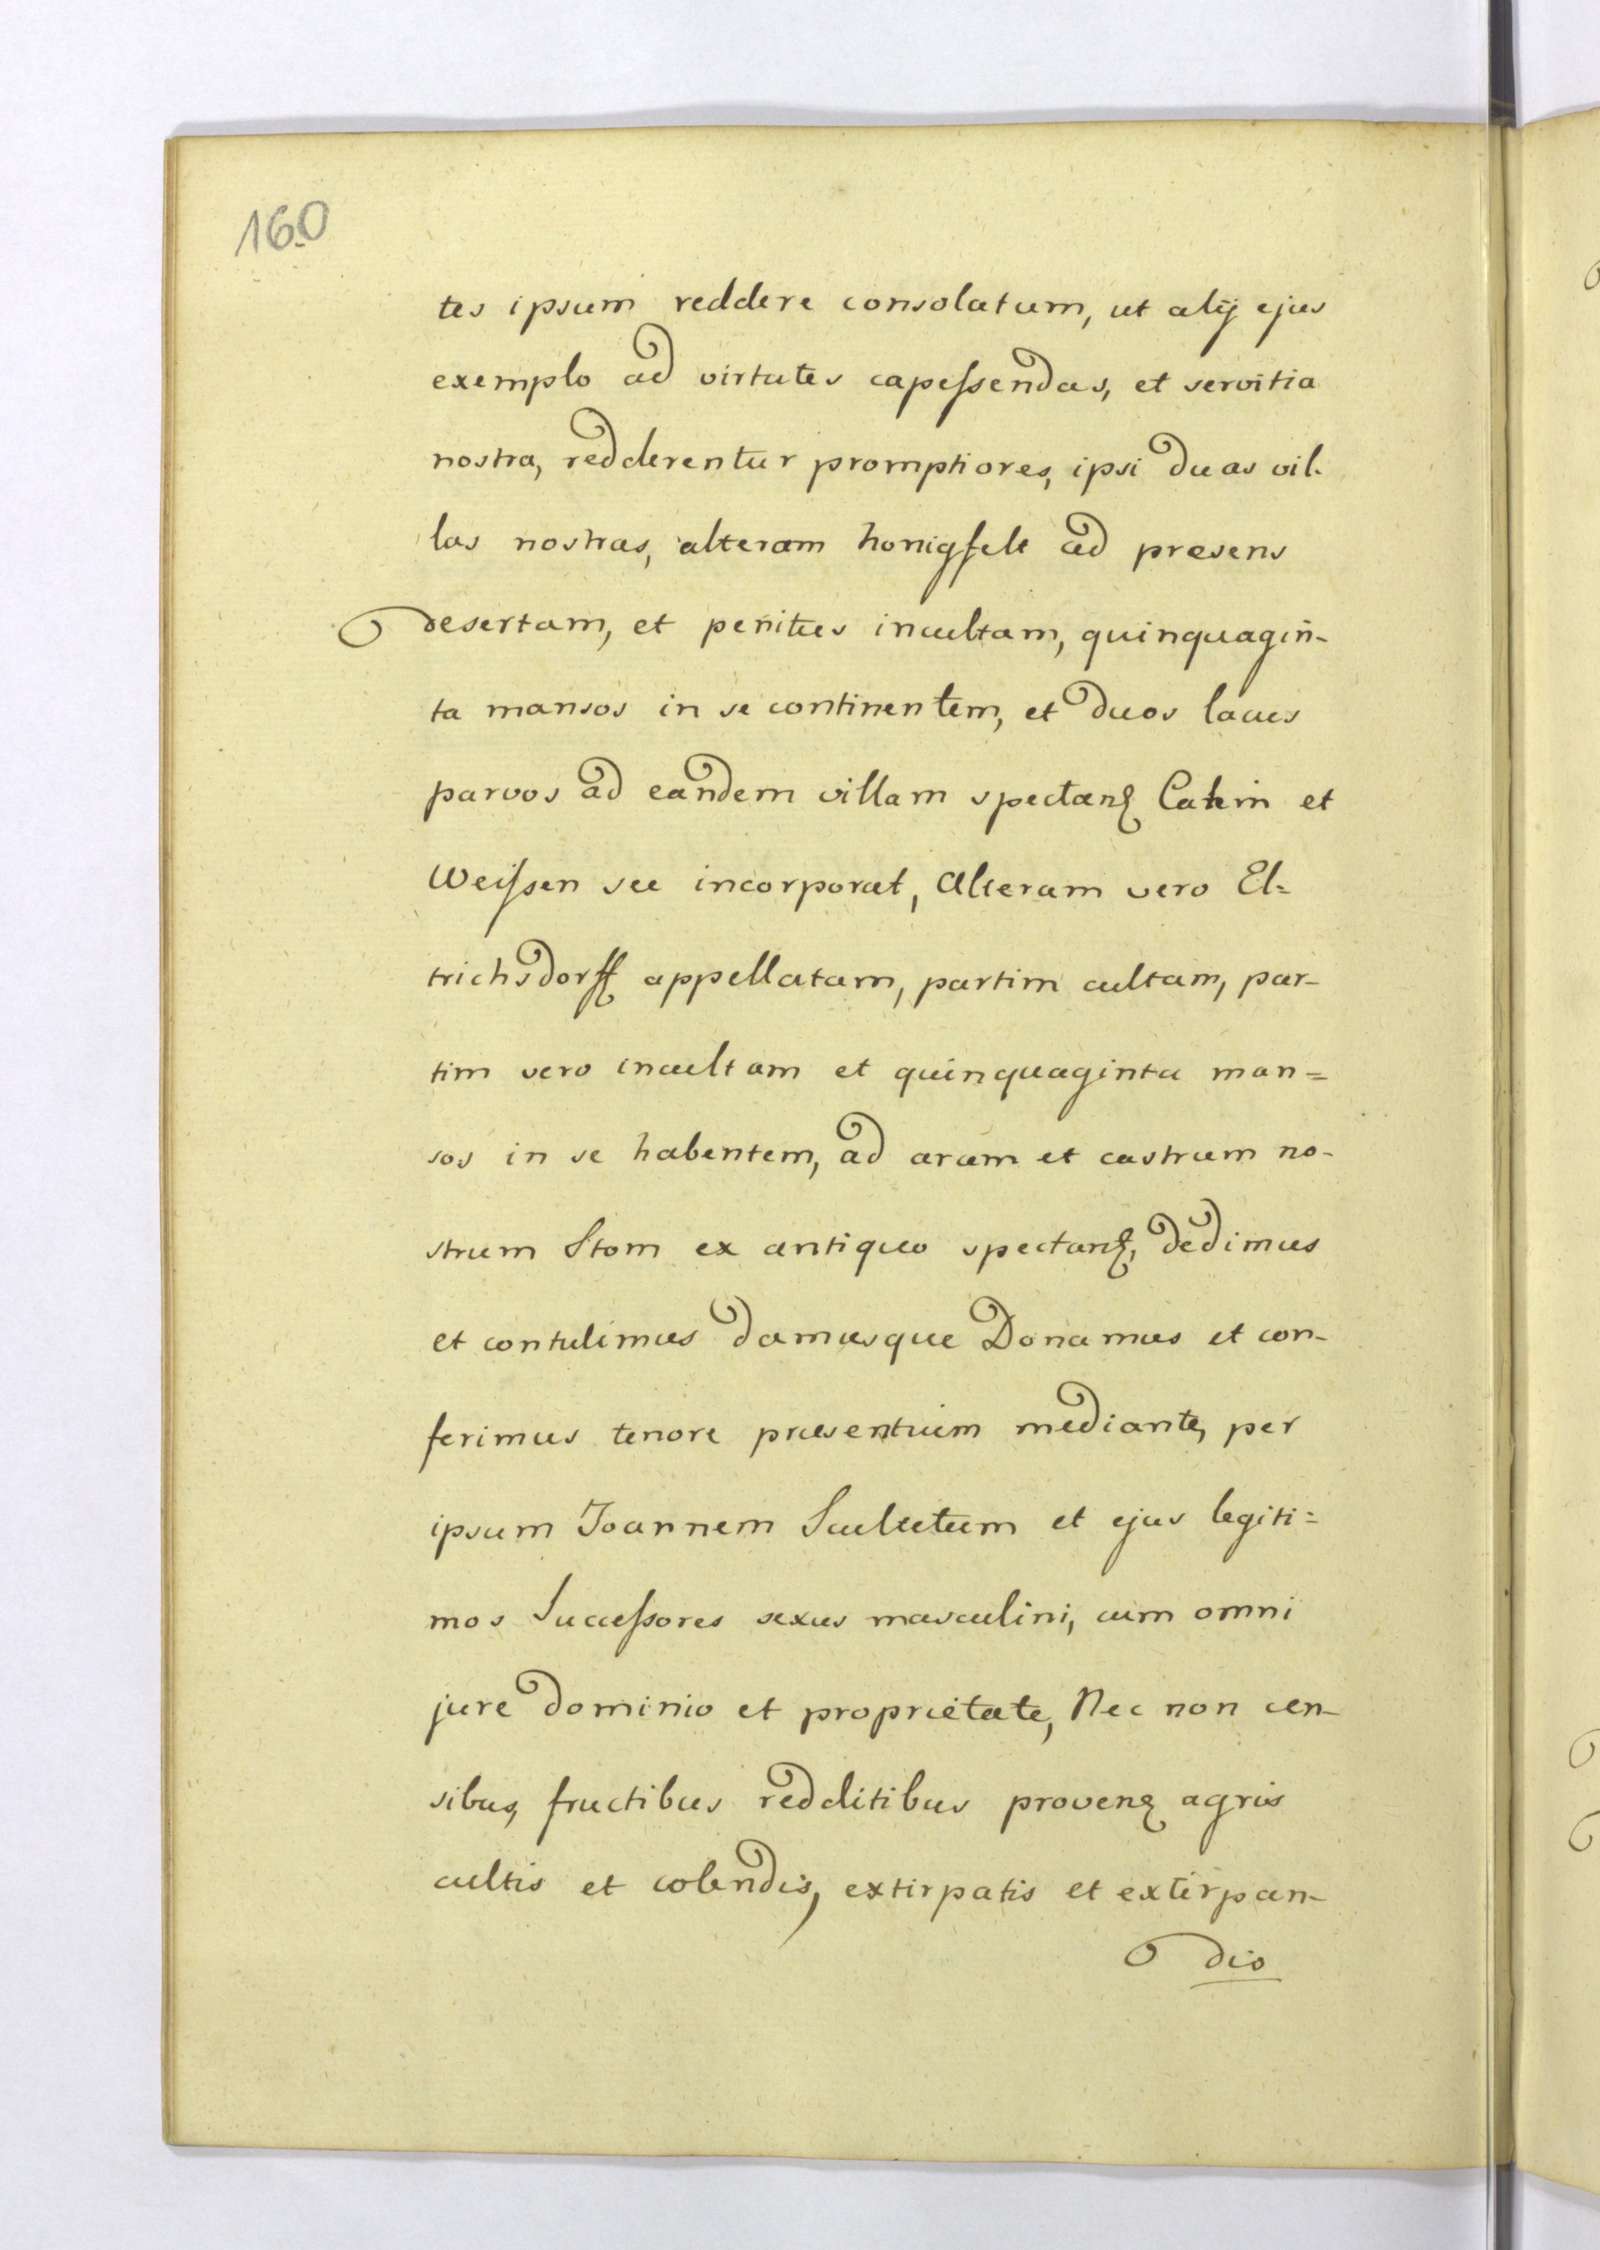 160
tes ipsum reddere consolatum, ut alÿ ejus
exemplo ad virtutes capeſsendas, et servitia
nostra, redderentur promptiores, ipsi duas vil-
las nostras, alteram honigfelt ad presens
desertam, et penitus incultam, quinquagin-
ta mansos in se continentem, et duos lacus
parvos ad eandem villam spectanꝭ et
Weiſsen see incorporat, Alteram vero El=
trichsdorff appellatam, partim cultam, par-
tim vero incultam et quinquaginta man=
sos in se habentem, ad arcem et castrum no-
strum Stom ex antiquo spectanꝭ, dedimus
et contulimus damusque Donamus et con-
ferimus tenore præsentium mediante, per
ipsum Joannem Scultetum et ejus legiti=
mos Succeſsores sexus masculini, cum omni
jure dominio et proprietate, Nec non cen-
sibus, fructibus redditibus provenꝭ agris
cultis et colendis, extirpatis et extirpan-
dis